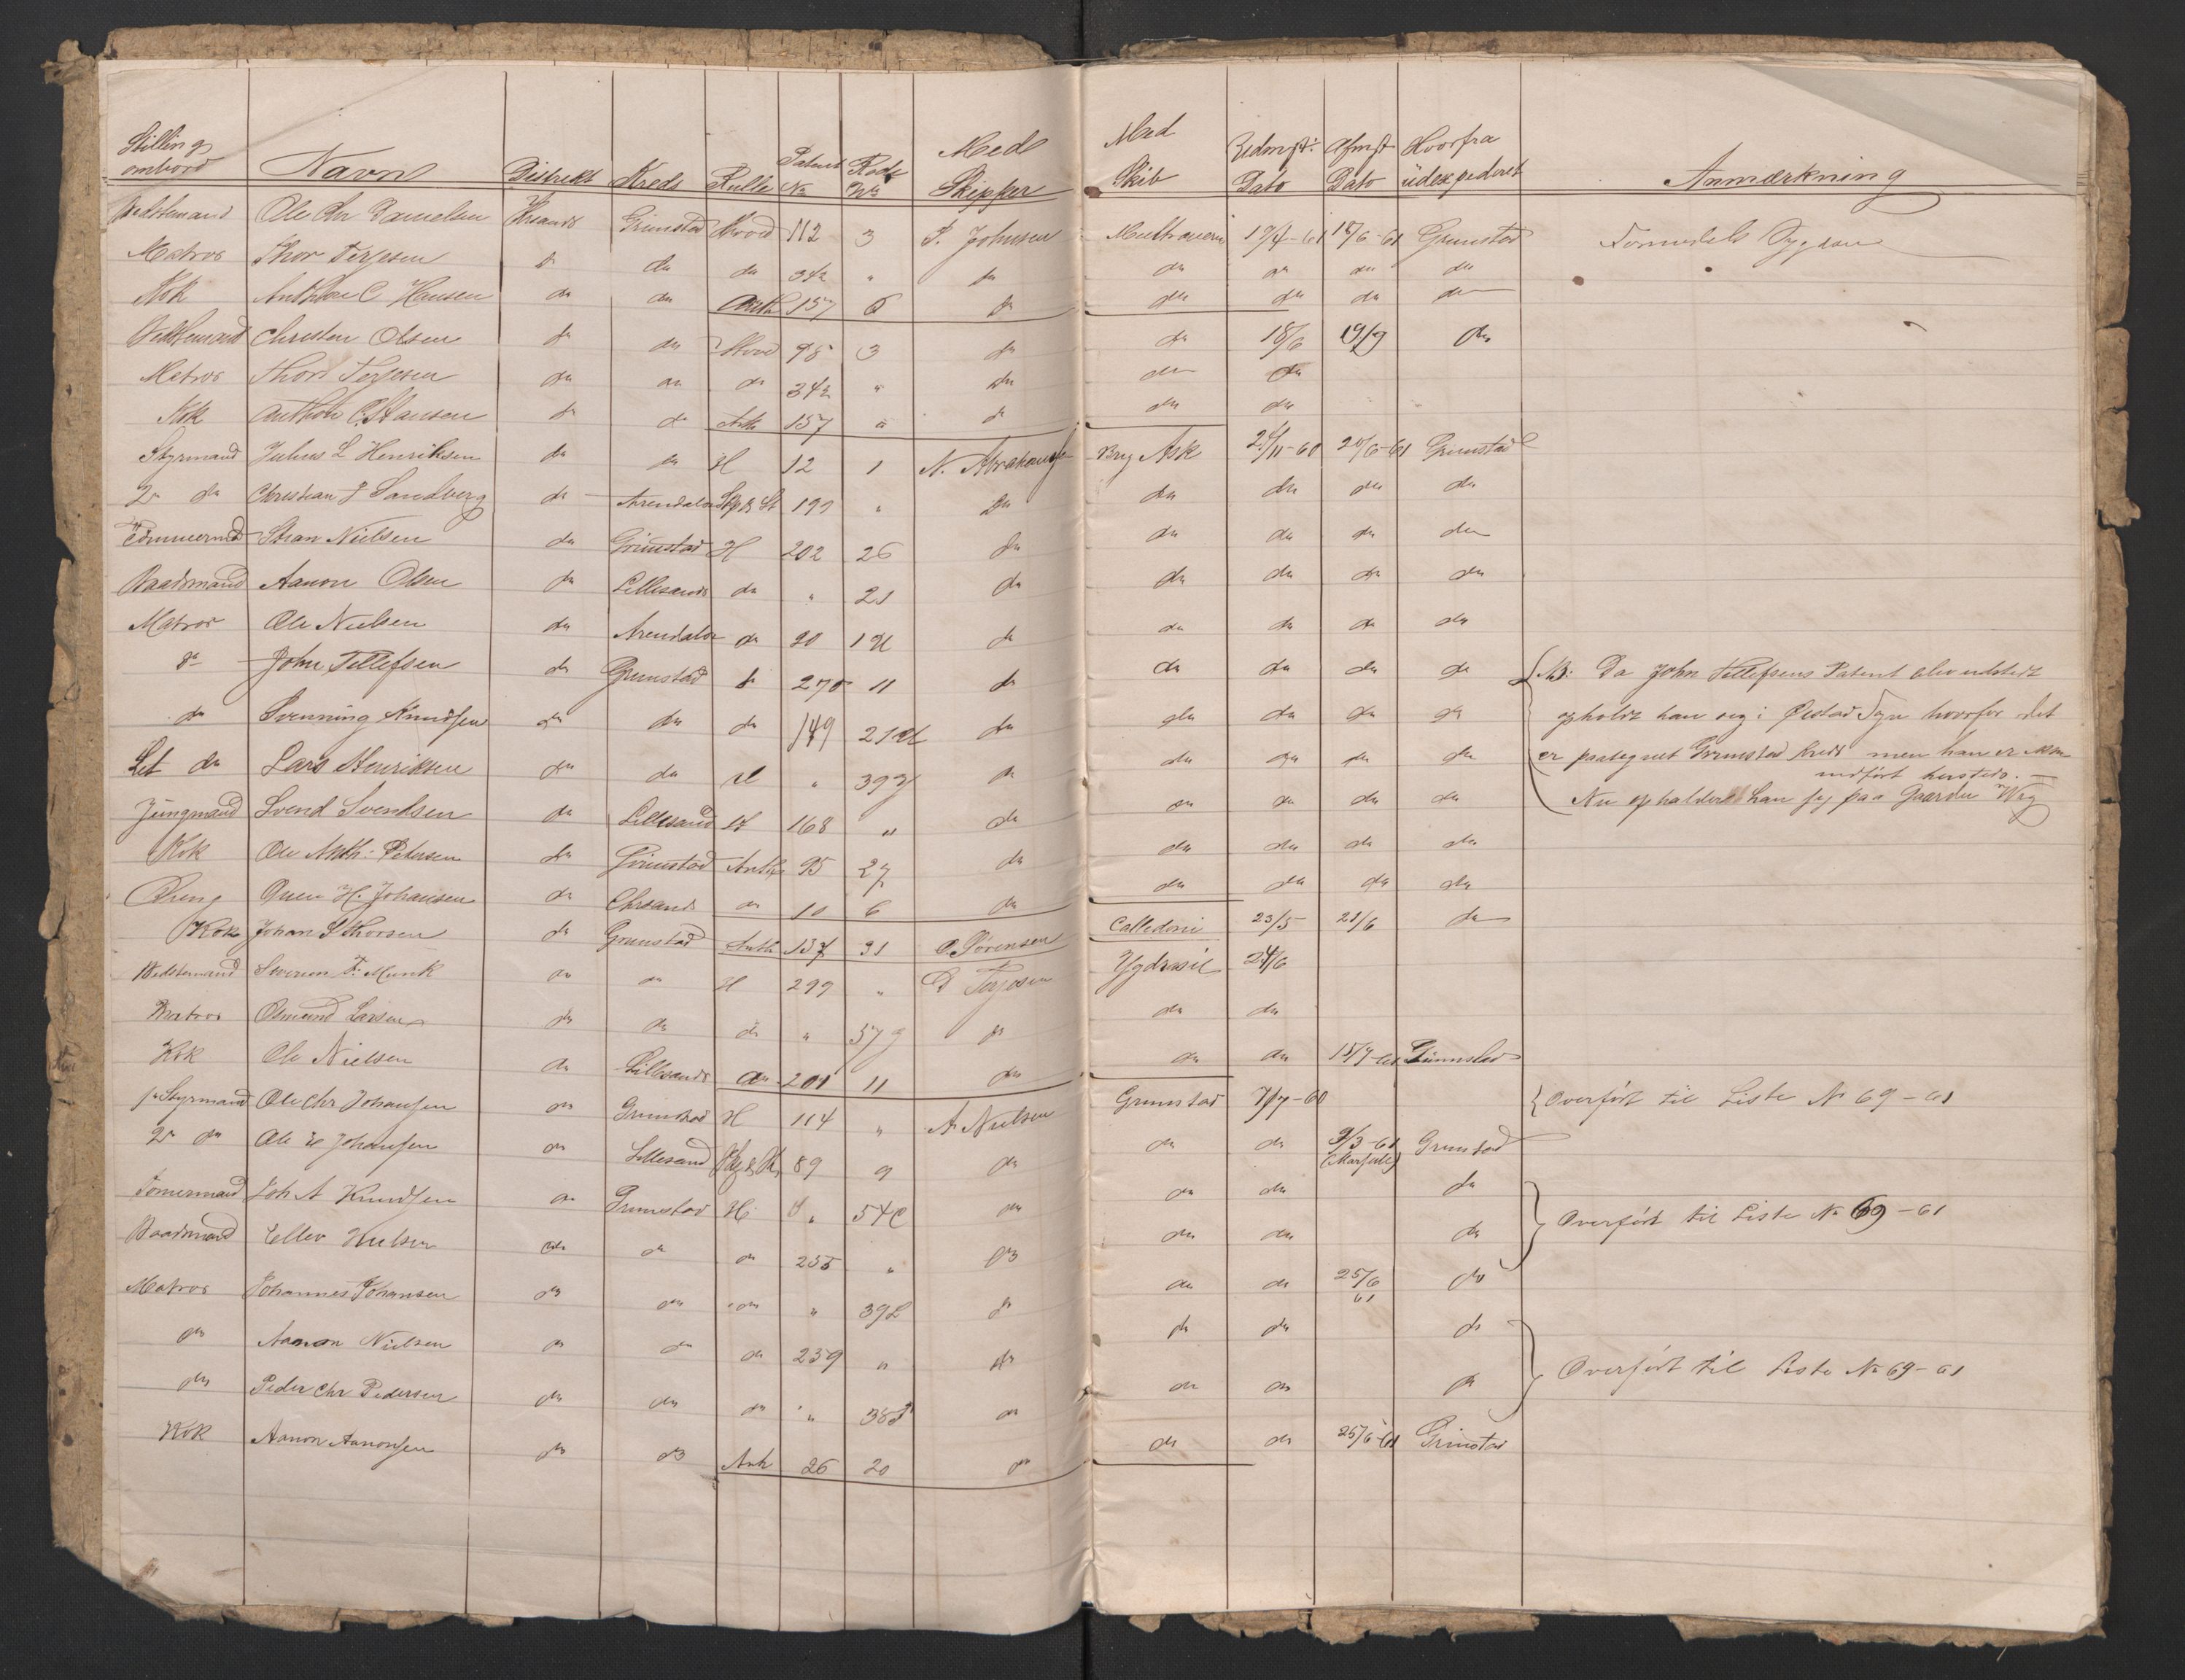 Stilling ombord | Navn | Distrikt | Kreds | Rulle | Patent No | Rode No | Med Skipper | Med Skib | Udmst: Dato | Afmst Dato | Hvorfra udexpederet | Anmærkning
Bedstemand | Ole Chr Danielsen | Chrsands | Grimstad | Hoved | 112 | 3 | P. Johnsen | | 19/4-61 | 18/6-61 | Grimstad
Matros | Thor Terjesen | do | do | do | 342 | " | do | do | do | do | do
Kok | Anthon C Hansen | do | do | Anth | 157 | 6 | do | do | do | do | do
Bedstemand | Christen Olsen | do | do | Hoved | 98 | 3 | do | do | 18/6 | 19/9 | do
Matros | Thor Terjesen | do | do | do | 342 | " | do | do | do
Kok | Anthon C. Hansen | do | do | Anth | 157 | " | do | do | do
Styrmand | Julius L Henriksen | do | do | H | 12 | 1 | N. Abrahams | Brg Ask | 24/11-60 | 20/6-61 | Grimstad
2n do | Christian J Sandberg | do | Arendals | | 199 | " | do | do | do | do | do
Tömmermd | Stian Nielsen | do | Grimstad | H | 202 | 26 | do | do | do | do | do
Baadsmand | Aanon Olsen | do | Lillesands | do | " | 21 | do | do | do | do | do
Matros | Ole Nielsen | do | Arendals | do | 90 | | do | do | do | do | do
do | John Tellefsen | do | Grimstad | do | 270 | 11 | do | do | do | do | do | NB: Da John Tellefsens Patent blev udstedt
do | Svenning Knudsen | do | do | do | 149 | | do | do | do | do | do | opholdt han sig i Øiestad Sogn hvorfor det
Let do | Lars Henriksen | do | do | H | " | 39 | do | do | do | do | do | er paategnet Grimstad Kreds men han er
indført hersteds. —
Jüngmand | Svend Svendsen | do | Lillesand | H | 168 | " | do | do | do | do | do | Nu opholder han sig paa Gaarden
Kok | Ole Anth: Petersen | do | Grimstad | Anth | 95 | 27 | do | do | do | do | do
Dreng | H. Johansen | do | Chrsands | do | 10 | 6 | do | do | do | do | do
Kok | Johan S Thorsen | do | Grimstad | Anth | 137 | 31 | O. Sørensen | Calledoni | 23/5 | 21/6 | do
Bedstemand | Severin F. Munk | do | do | H | 299 | " | Terjesen | Ygdrasil | 24/6
Matros | Osmund Larsen | do | do | do | " | 57 | do | do | do
Kok | Ole Nielsen | do | Lillesands | do | 201 | 11 | do | do | do | 15/7-61 | Grimstad
1n Styrmand | Ole Chr Johansen | do | Grimstad | H | 114 | " | A Nielsen | Grimstad | 7/7-60 | | | Overført til Liste No 69-61
2n do | Ole E Johansen | do | Lillesand | | 89 | 9 | do | do | do | 9/3-61 (Marseille) | Grimstad
Tömermand | Joh A Knudsen | do | Grimstad | H | " | 54 | do | do | do | | do | Overført til Liste No 69-61
Baadsmand | Ellev Nielsen | do | do | do | 255 | " | do | do | do | | do
Matros | Johannes Johansen | do | do | do | " | 39 | do | do | do | 25/6 61 | do
do | Aanon Nielsen | do | do | do | 239 | " | do | do | do | | do | Overført til Liste No 69-61
do | Peder Chr Pedersen | do | do | do | " | 38 | do | do | do | | do
Kok | Aanon Aanonsen | do | do | Anth | 26 | 20 | do | do | do | 25/6-61 | Grimstad